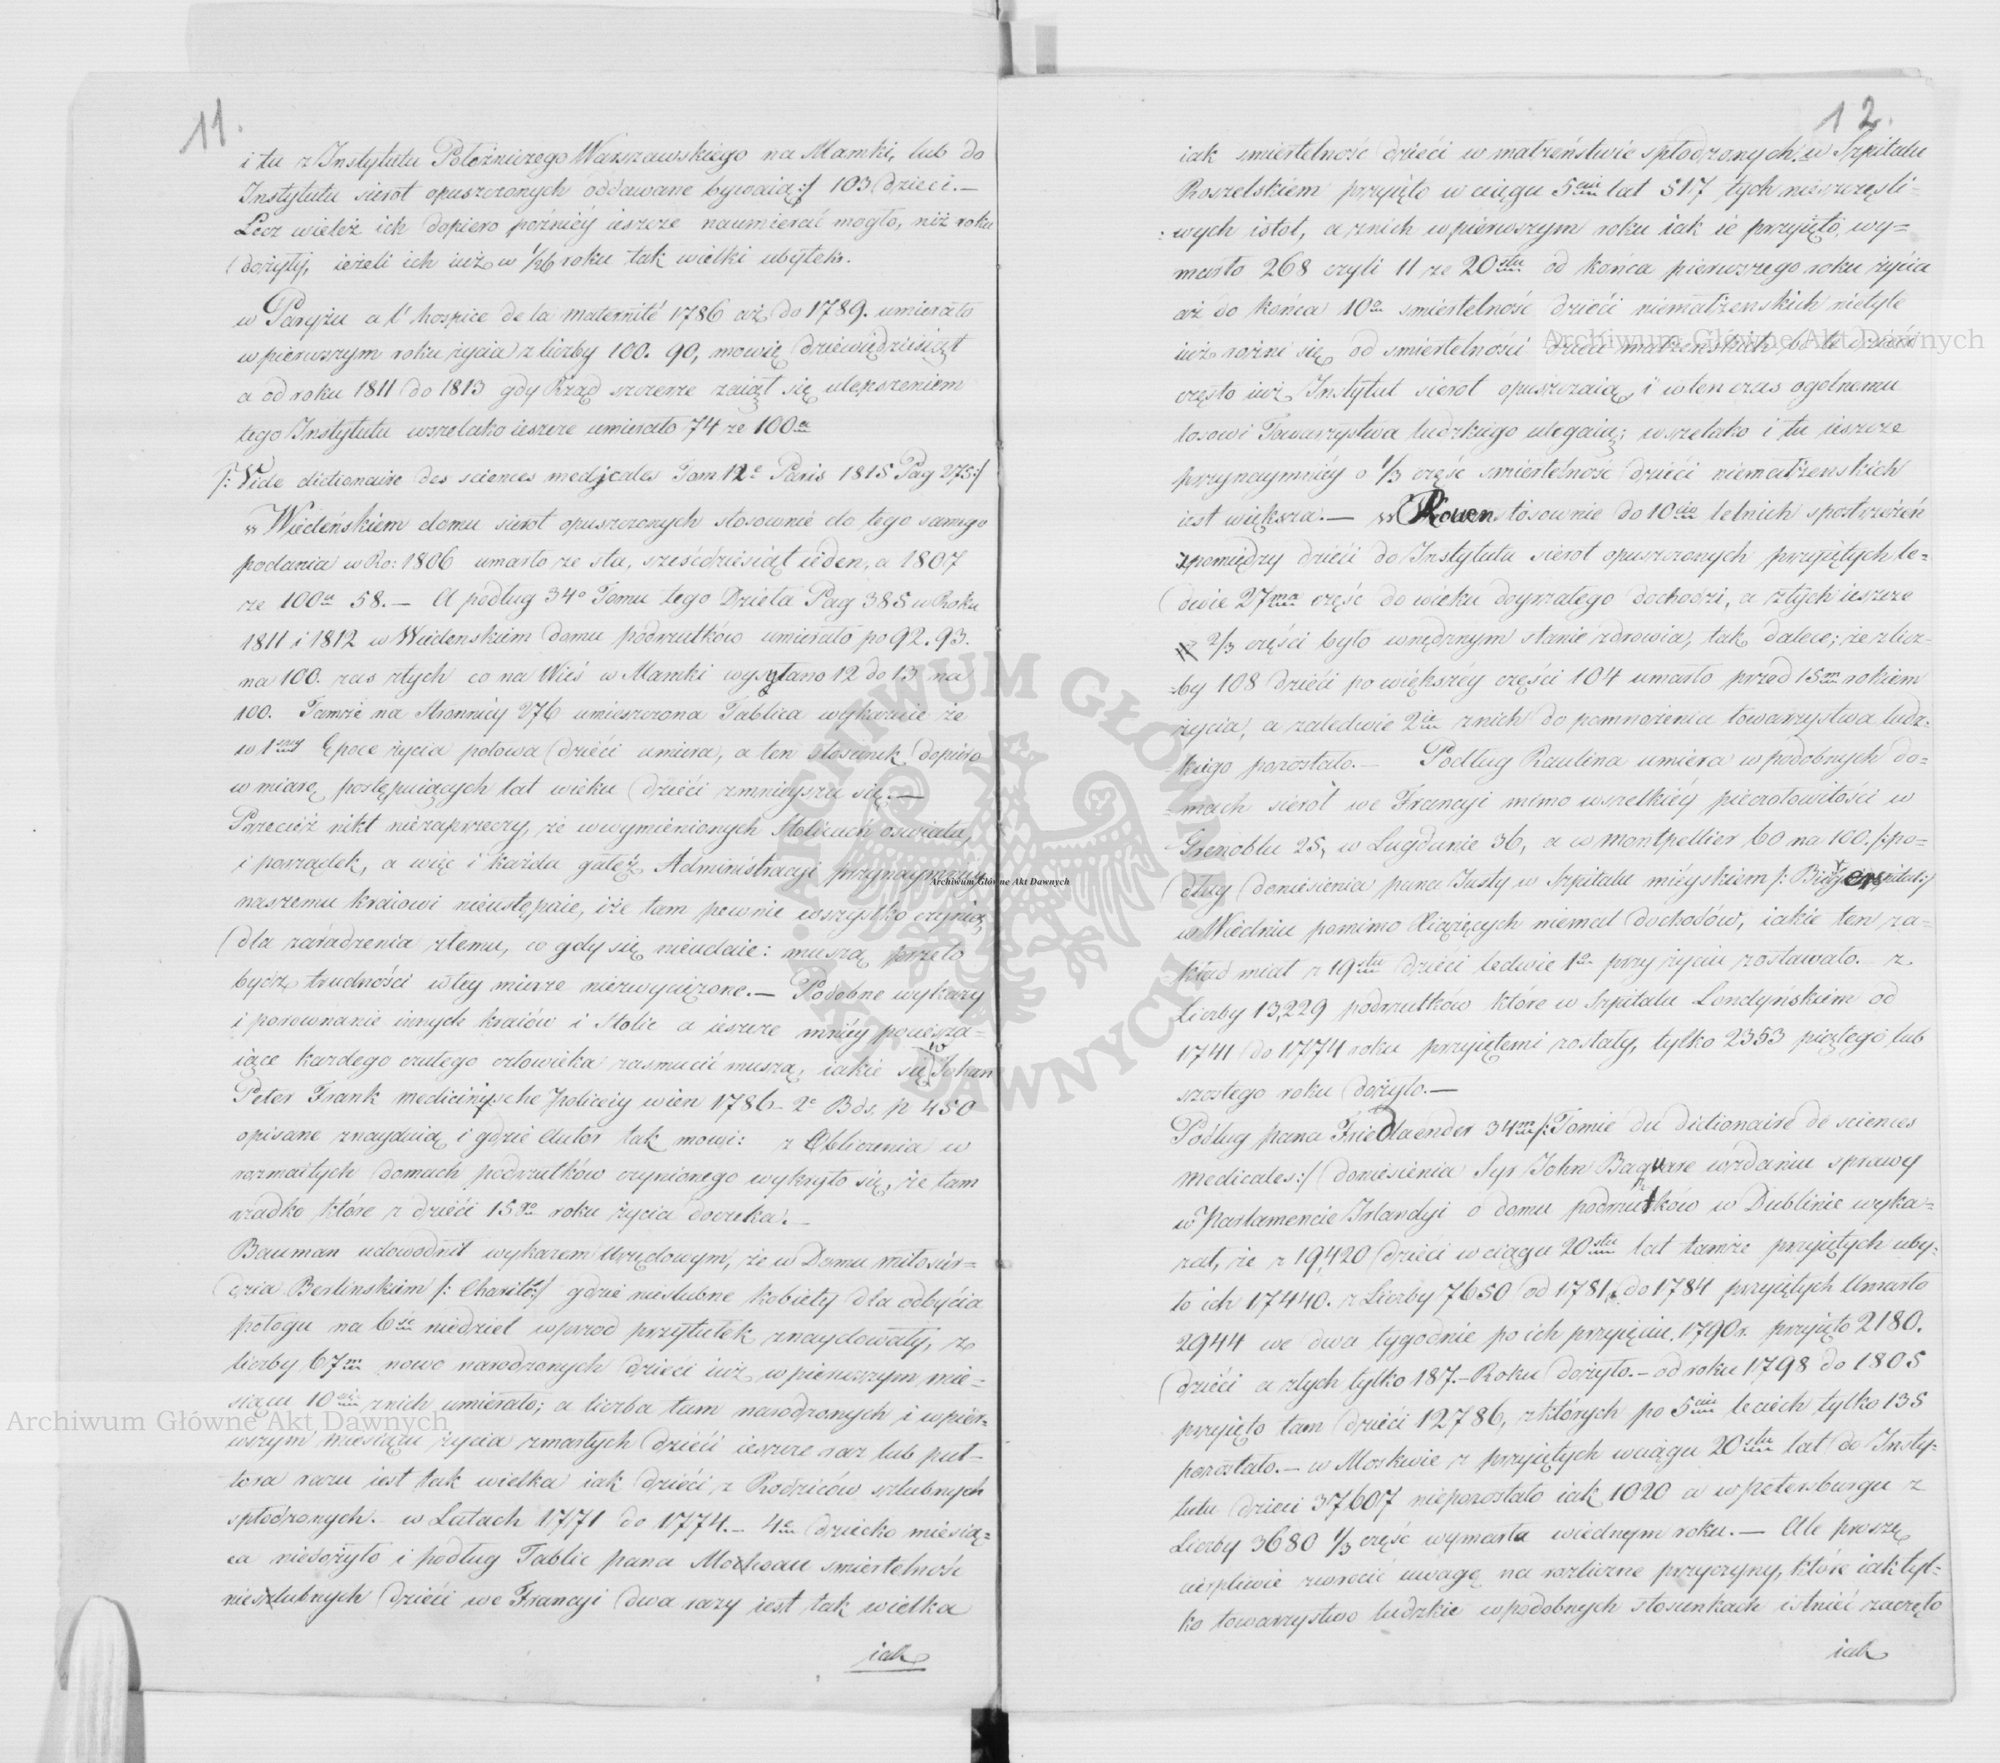 11.
i tu z Instytutu Położniczego Warszawskiego na Mamki, lub do
Instytutu sierot opuszczonych oddawane bywaią:/ 103 dzieci.—
Lecz wieleż ich dopiero poźniéy ieszcze naumierać mogło, niż roku
dożyły, ieżeli ich iuż w 1/26 roku tak wielki ubytek.
w Paryżu a l'hospice de la maternité 1786 aż do 1789. umierało
w pierwszym roku życia z liczby 100. 90, mowię dziewiędziesiąt
a od roku 1811 do 1813 gdy Rząd szczerze zaiął się ulepszeniem
tego Instytutu wszelako ieszcze umierało 74 ze 100a
/: Vide dictionaire des sciences medicales Tom 12e Paris 1815 Pag 275:/
w Wiedeńskiem domu sierot opuszczonych stosownie do tego samego
podania w Ro: 1806 umarło ze sta, sześćdziesiąt ieden, a 1807
ze 100a 58.— A podług 34o Tomu tego Dzieła Pag 385 w Roku
1811 i 1812 w Wiedenskim domu podrzutków umierało po 92. 93.
na 100. zas z tych co na Wieś w Mamki wysyłano 12 do 13 na
100. Tamże na Stronnicy 276 umieszczona Tablica wykazuie że
w 1szey Epoce życia połowa dzieći umiera, a ten stosunek dopiero
w miarę postępuiących lat wieku dzieći zmnieysza się.—
Przecież nikt niezaprzeczy, że w wymienionych Stolicach oswiata,
i porządek, a więc i każda gałęź Administracyi przynaymniéy
naszemu kraiowi nieustępuie, iże tam pewnie wszystko czynią
dla zaradzenia złemu, co gdy się nieudaie: muszą przeto
bydź trudności w tey mierze niezwyciężone.— Podobne wykazy
i porownanie innych kraiów i Stolic a ieszcze mniéy pociesza-
iące kazdego czułego człowieka zasmucić muszą, iakie się w Johan
Peter Frank medicinische Policeiy wien 1786 2e Bds. p 450
opisane znayduią i gdzie Autor tak mowi: z Obliczenia w
rozmaitych domach podrzutków czynionego wykryło się, że tam
rzadko które z dzieći 15go roku życia doczeka.—
Bauman udowodnił wykazem Urzędowym, że w Domu miłosier-
dzia Berlinskim /: Charité:/ gdzie nieślubne kobiety dla odbycia
połogu na 6sc niedziel wprzod przytułek znaydowały, z
liczby 67m nowo narodzonych dzieći iuż w pierwszym mie-
siącu 10cio z nich umierało; a liczba tam narodzonych i w pier-
wszym miesiącu życia zmarłych dzieći ieszcze raz lub puł-
tora razu iest tak wielka iak dzieći z Rodziców szlubnych
spłodzonych. w Latach 1771 do 1774.— 4e dziecko miesią-
ca niedożyło i podług Tablic pana Moheau smiertelność
nieszlubnych dzieći we Francyi dwa razy iest tak wielka
iak
12.
iak smiertelność dzieći w małżeństwie spłodzonych. w Szpitalu
Roszelskiem przyięto w ciągu 5ciu lat 517 tych nieszczęśli-
wych istot, a z nich w pierwszym roku iak ie przyięto, wy=
marło 268 czyli 11 ze 20stu od końca pierwszego roku życia
aż do końca 10o smiertelność dzieći niemałżenskich nietyle
iuż rożni się od smiertelności dzieći małżenskich, bo te dzieći
często iuż Instytut sierot opuszczaią, i w ten czas ogolnemu
losowi Towarzystwa ludzkiego ulegaią; wszelako i tu ieszcze
przynaymniéy o 1/3 część smiertelność dzieći niemałżenskich
iest większa.— w Rouen stosownie do 10cio letnich spostrzeżeń
z pomiędzy dzieći do Instytutu sierot opuszczonych przyiętych le-
dwie 27ma część do wieku doyrzałego dochodzi, a z tych ieszcze
2/3 części było w nędznym stanie zdrowia, tak dalece; że z licz-
by 108 dzieći po większéy części 104 umarło przed 15m rokiem
życia, a zaledwie 2ie z nich do pomnożenia towarzystwa ludz-
kiego pozostało.— Podług Raulina umiera w podobnych do-
mach sierot we Francyi mimo wszelkiéy pieczołowitości w
Grenoblu 25, w Lugdunie 36, a w Montpellier 60 na 100. /: po-
dług doniesienia pana Justy w Szpitalu mieyskiem
w Wiedniu pomimo Xiążęcych niemal dochodów, iakie ten za-
kład miał z 19stu dzieći ledwie 1o przy życiu zostawało. z
Liczby 13,229 podrzutków które w Szpitalu Londyńskim od
1741 do 1774 roku przyiętemi zostały, tylko 2353 piątego lub
szostego roku dożyło.—
Podług pana Friedlaender 34m /: Tomie du dictionaire de sciences
medicales:/ doniesienia Syr John Baquare w zdaniu sprawy
w Parlamencie Irlandyi o domu podrzutków w Dublinie wyka-
zał, że z 19,420 dzieći w ciągu 20stu lat tamże przyiętych uby-
ło ich 17440. z Liczby 7650 od 1781, do 1784 przyiętych Umarło
2944 we dwa tygodnie po ich przyięciu. 1790r. przyięto 2180.
dzieći a z tych tylko 187.— Roku dożyło.— od roku 1798 do 1805
przyięto tam dzieći 12786, z których po 5ciu leciech tylko 135
pozostało.— w Moskwie z przyiętych w ciągu 20stu lat do Insty-
tutu dzieci 37607 niepozostało iak 1020 a w petersburgu z
Liczby 3680 1/3 część wymarła w iednym roku.— Ale proszę
cierpliwie zwrocić uwagę na rozliczne przyczyny, które iak tyl-
ko towarzystwo ludzkie w podobnych stosunkach istnieć zaczęło
iak
Archiwum Główne Akt Dawnych
Archiwum Główne Akt Dawnych
Archiwum Główne Akt Dawnych
ARCHIWUM GŁÓWNE AKT DAWNYCH